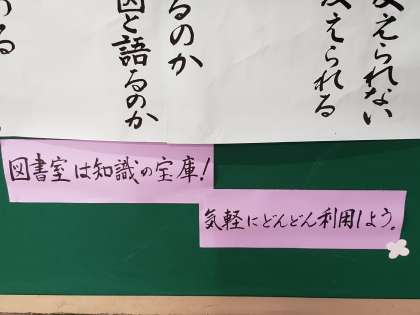 えられない
えられる
るのか
と語るのか
る
図書室は知識の宝庫!
気軽にどんどん利用しよう。